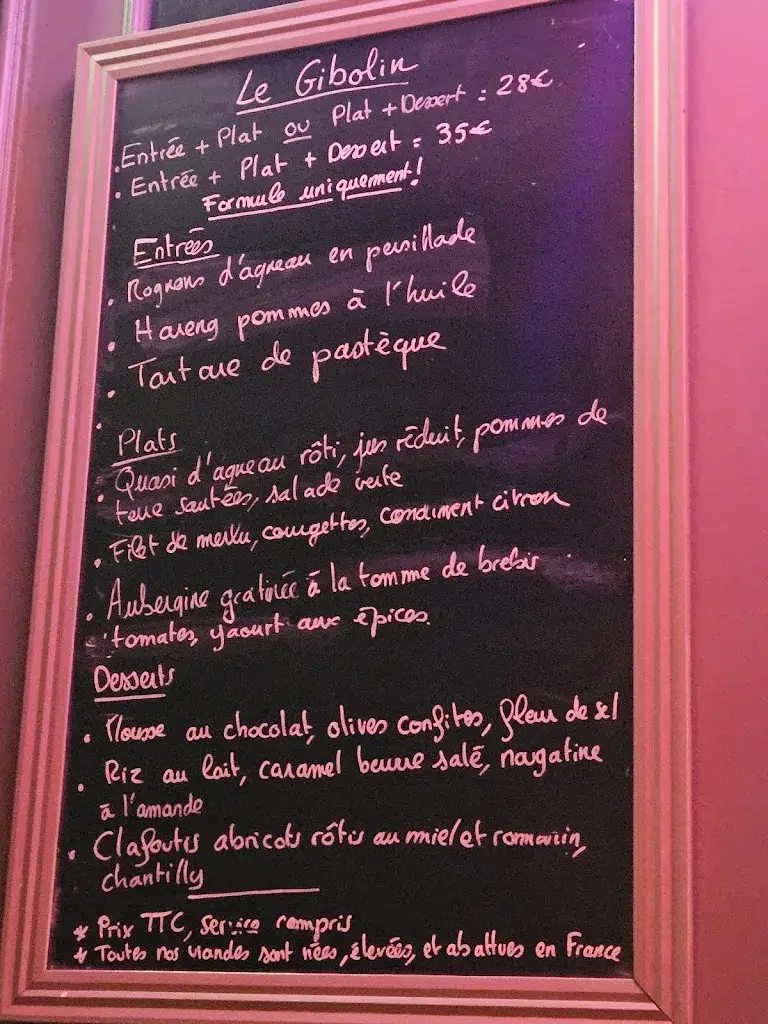 Le Gibolin
. Entrée + Plat ou Plat + Dessert : 28€
. Entrée + Plat + Dessert : 35€
Formule uniquement !
Entrées
. Rognons d'agneau en persillade
. Hareng pommes à l'huile
. Tartare de pastèque
Plats
. Quasi d'agneau rôti, jus réduit, pommes de
terre sautées, salade verte
. Filet de merlu, courgettes, condiment citron
. Aubergine gratinée à la tomme de brebis
tomates, yaourt aux épices.
Desserts
. Mousse au chocolat, olives confites, fleur de sel
. Riz au lait, caramel beurre salé, nougatine
à l'amande
. Clafoutis abricots rôtis au miel et romarin,
chantilly
* Prix TTC, service compris
* Toutes nos viandes sont nées, élevées, et abattues en France